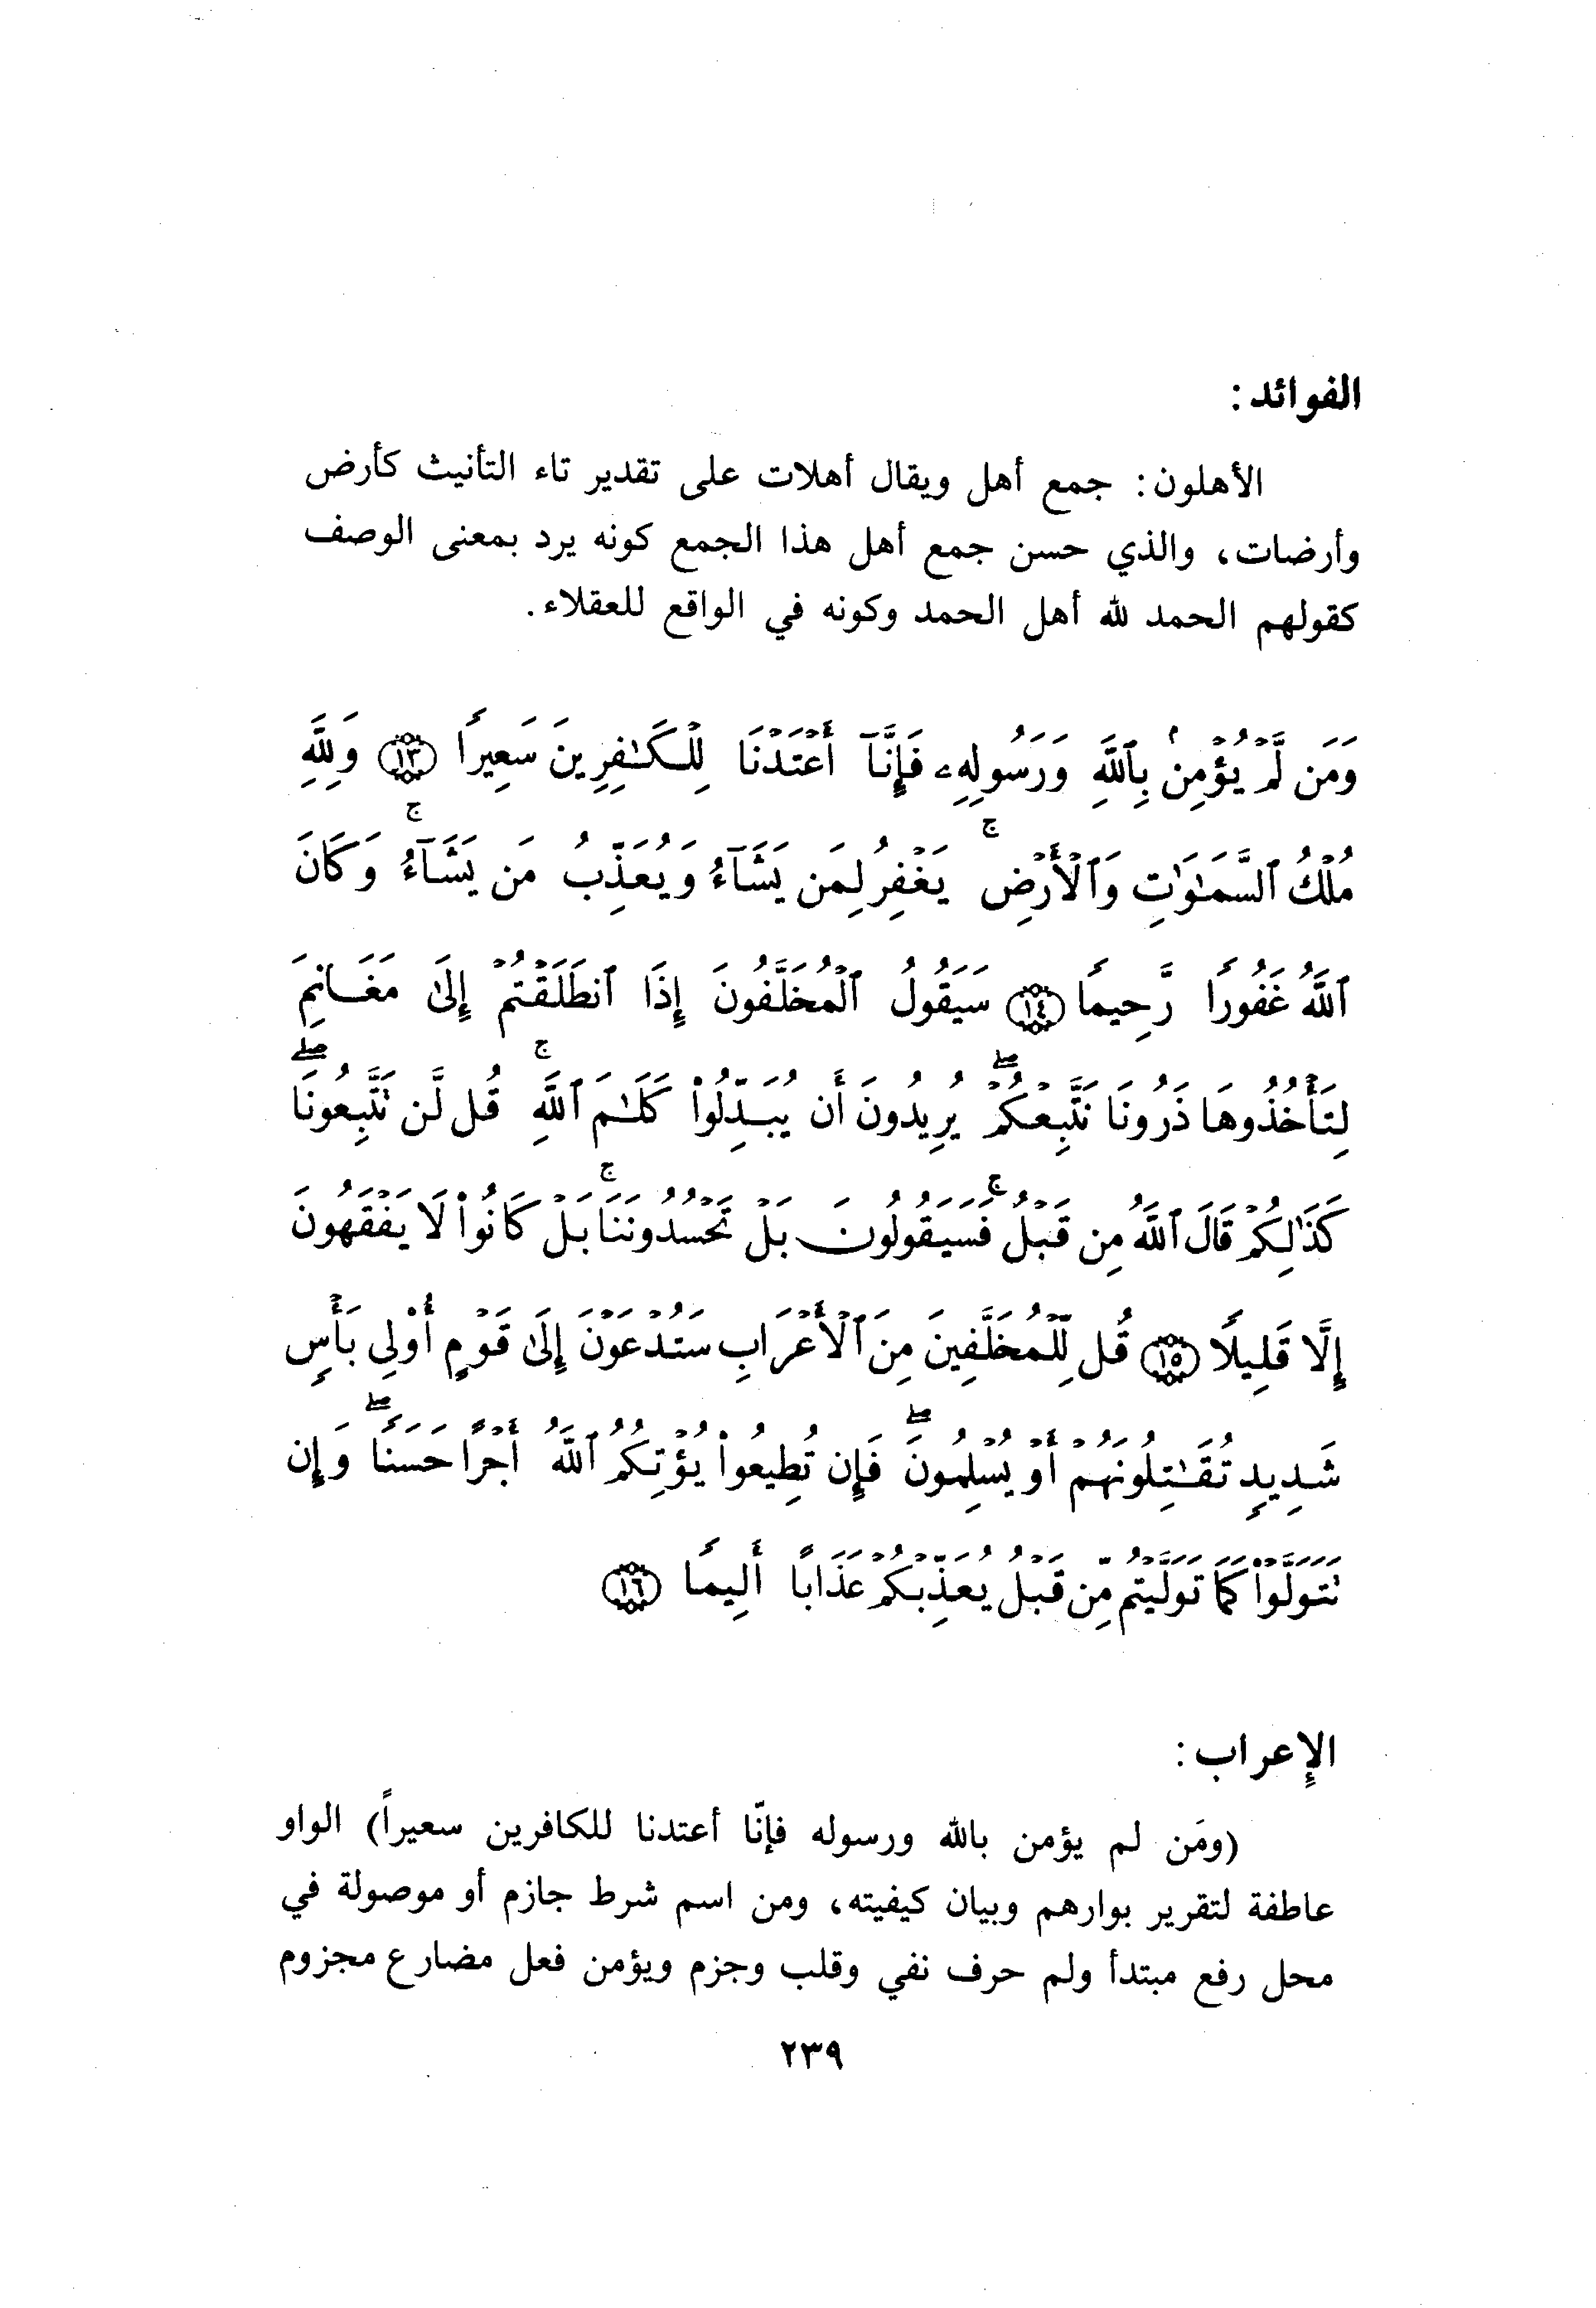 الفوائد :
الأهلون: جمع أهل ويقال أهلات على تقدير تاء التأنيث كأرض
وأرضات، والذي حسن جمع أهل هذا الجمع كونه يرد بمعنى الوصف
كقولهم الحمد لله أهل الحمد وكونه في الواقع للعقلاء.
وَمَن لَّمْ يُؤْمِنۢ بِٱللَّهِ وَرَسُولِهِۦ فَإِنَّآ أَعْتَدْنَا لِلْكَـٰفِرِينَ سَعِيرًا ﴿١٣﴾ وَلِلَّهِ
مُلْكُ ٱلسَّمَـٰوَٰتِ وَٱلْأَرْضِ ۚ يَغْفِرُ لِمَن يَشَآءُ وَيُعَذِّبُ مَن يَشَآءُ ۚ وَكَانَ
ٱللَّهُ غَفُورًا رَّحِيمًا ﴿١٤﴾ سَيَقُولُ ٱلْمُخَلَّفُونَ إِذَا ٱنطَلَقْتُمْ إِلَىٰ مَغَانِمَ
لِتَأْخُذُوهَا ذَرُونَا نَتَّبِعْكُمْ ۖ يُرِيدُونَ أَن يُبَدِّلُوا۟ كَلَـٰمَ ٱللَّهِ ۚ قُل لَّن تَتَّبِعُونَا ۖ
كَذَٰلِكُمْ قَالَ ٱللَّهُ مِن قَبْلُ ۚ فَسَيَقُولُونَ بَلْ تَحْسُدُونَنَا ۚ بَلْ كَانُوا۟ لَا يَفْقَهُونَ
إِلَّا قَلِيلًا ﴿١٥﴾ قُل لِّلْمُخَلَّفِينَ مِنَ ٱلْأَعْرَابِ سَتُدْعَوْنَ إِلَىٰ قَوْمٍ أُو۟لِى بَأْسٍ
شَدِيدٍ تُقَـٰتِلُونَهُمْ أَوْ يُسْلِمُونَ ۖ فَإِن تُطِيعُوا۟ يُؤْتِكُمُ ٱللَّهُ أَجْرًا حَسَنًا ۖ وَإِن
تَتَوَلَّوْا۟ كَمَا تَوَلَّيْتُم مِّن قَبْلُ يُعَذِّبْكُمْ عَذَابًا أَلِيمًا ﴿١٦﴾
الإعراب :
(ومَن لم يؤمن بالله ورسوله فإنّا أعتدنا للكافرين سعيراً) الواو
عاطفة لتقرير بوارهم وبيان كيفيته، ومن اسم شرط جازم أو موصولة في
محل رفع مبتدأ ولم حرف نفي وقلب وجزم ويؤمن فعل مضارع مجزوم
٢٣٩